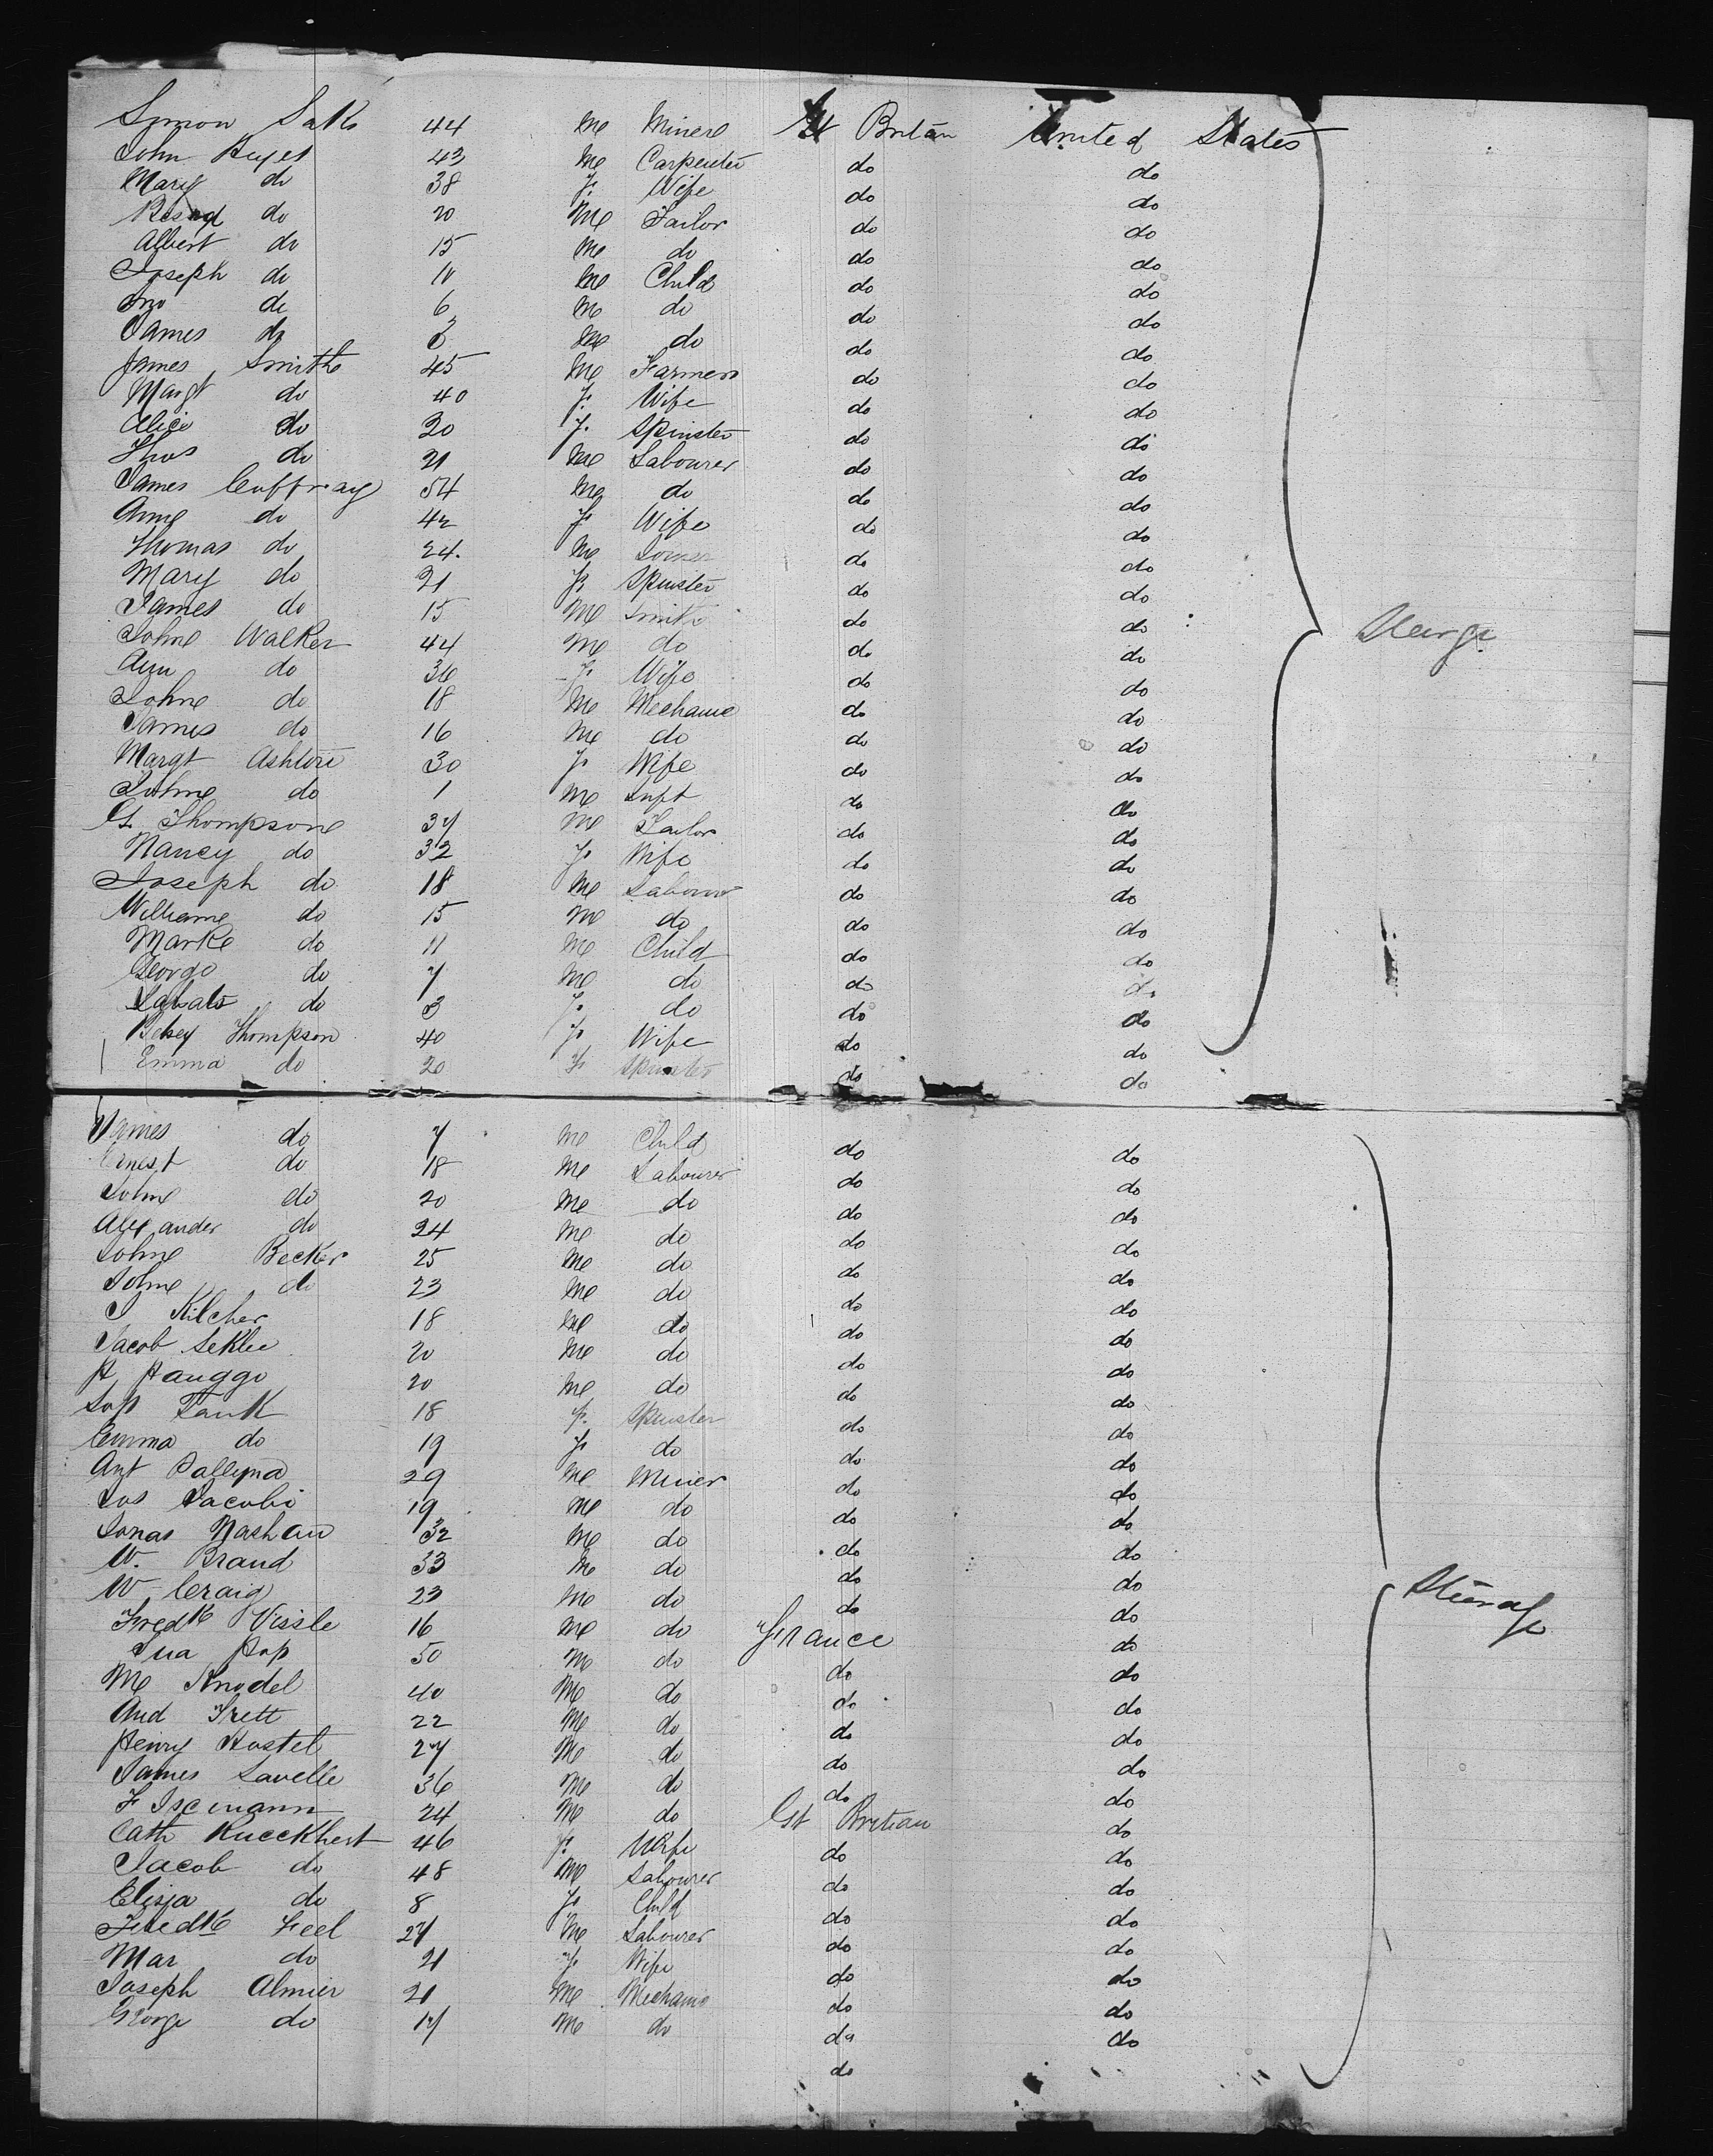 Simon Saks 44 Me Minere Gt Britan United States
John Buyes 43 Me Carpenter do do
Mary do 38 F. Wife do do
do 20 Me Tailor do do
Albert do 15 Me do do do
Joseph do 11 Me Child do do
Jno do 6 Me do do do
James do 3 Me do do do
James Smithe 45 Me Farmer do do
Margt do 40 F. Wife do do
Alice do 20 F. Spinster do do
Thos do 21 Me Labourer do do
James Cuffray 54 Me do do do
Anne do 42 F Wife do do
Thomas do 24. Me Joiner do do
Mary do 21 F Spinster do do
James do 15 Me Smith do do
Johne Walker 44 Me do do do Steerage
Ann do 36 F Wife do do
Johne do 18 Me Mechanic do do
James do 16 Me do do do
Margt Ashtone 30 F Wife do do
Johne do 1 Me Inft do do
G. Thompsone 37 Me Tailor do do
Nancy do 32 F Wife do do
Joseph do 18 Me Labourer do do
Williame do 15 Me do do do
Marke do 11 Me Child do do
George do 7 Me do do do
do 3 F. do do do
Betsey Thompson 40 F Wife do do
Emma do 20 F Spinster do do
James do 7 Me Child do do
Ernest do 18 Me Labourer do do
Johne do 20 Me do do do
Alexander do 24 Me do do do
Johne Becker 25 Me do do do
Johne do 23 Me do do do
J Kilcher 18 Me do do do
Jacob Seklee 20 Me do do do
H Hauggo 20 Me do do do
Sop Tank 18 F. Spinster do do
Emma do 19 F do do do
Ant Pallyma 29 Me Minier do do
Jos Jacobi 19 Me do do do
Jonas Nashan 32 Me do do do
W. Brand 33 Me do do do
W Craig 23 Me do do do Steerage
Fredk Vissle 16 Me do France do
Pop 50 Me do do do
Me Knodel 40 Me do do do
And Frett 22 Me do do do
Henry Hostel 27 Me do do do
James Lavelle 36 Me do do do
F Isemann 24 Me do Gt Britian do
Cath Rueckhert 46 F. Wife do do
Jacob do 48 Me Labourer do do
Elisja do 8 F Child do do
Fredk Feel 27 Me Labourer do do
Mar do 21 F Wife do do
Joseph Almier 21 Me Mechanic do do
George do 17 Me do do do
do